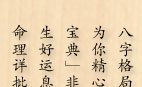 八字格局
为你精心
宝典」非
生好运息
命理详批